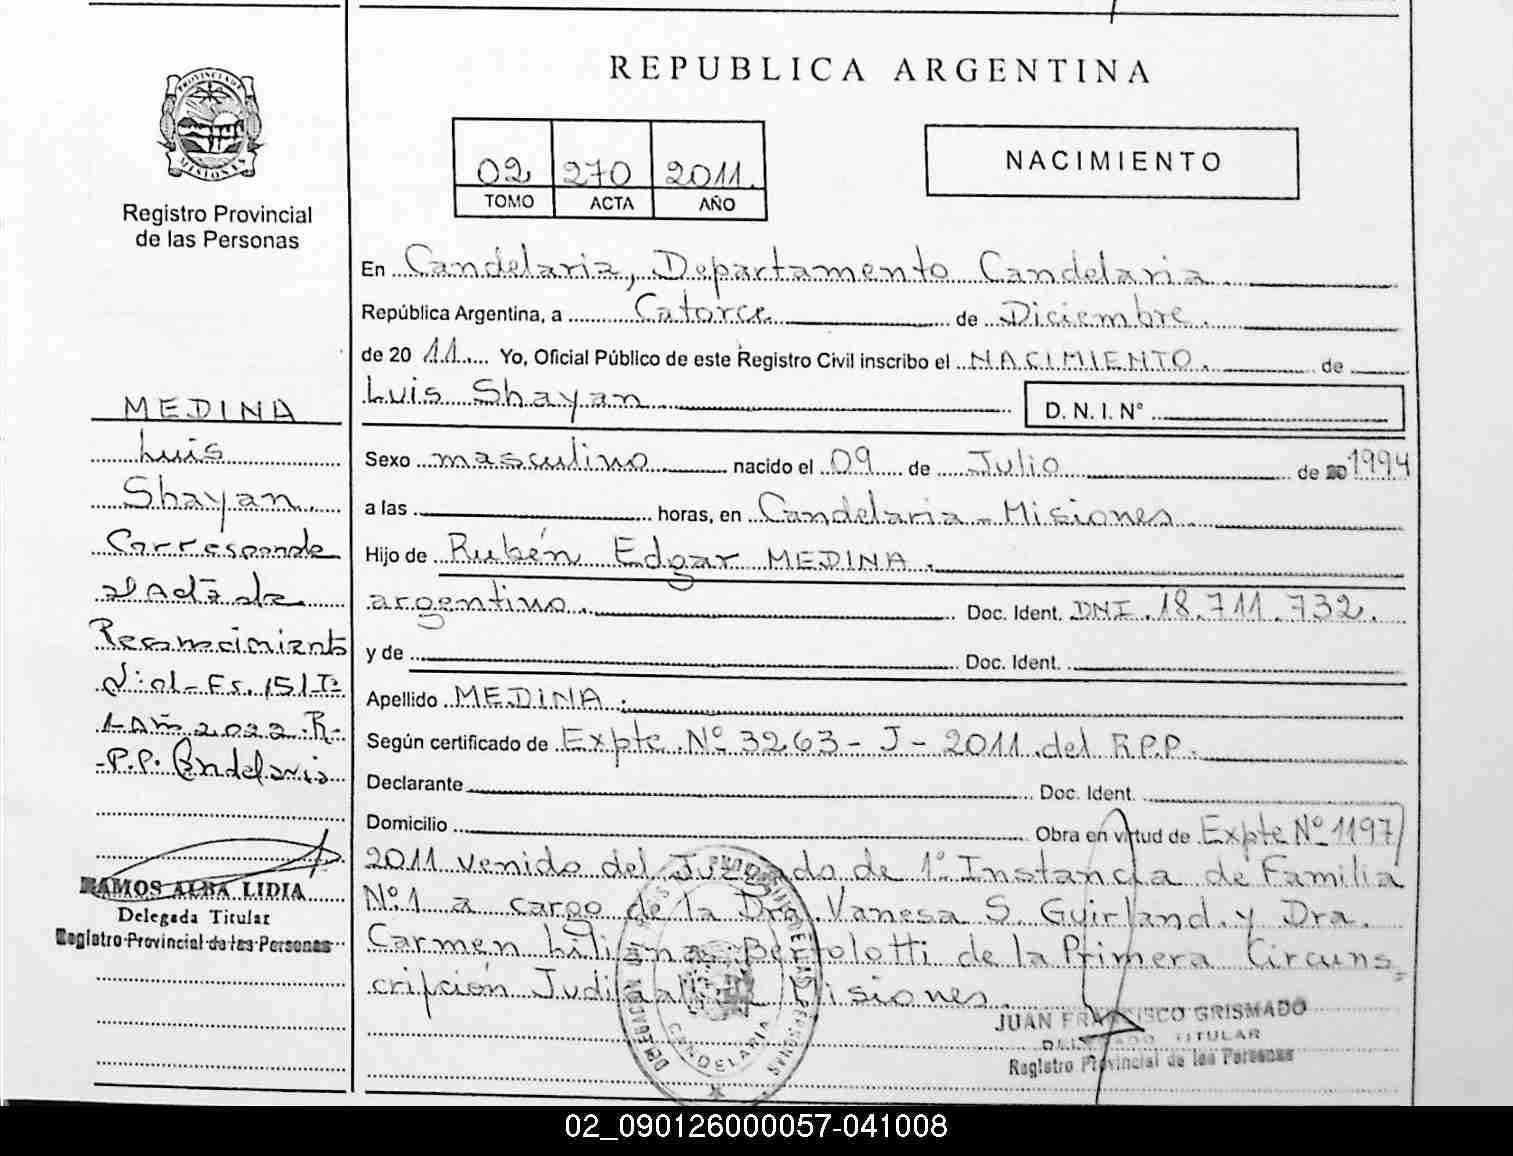 REPUBLICA ARGENTINA
PROVINCIA DE
MISIONES
Registro Provincial
de las Personas
02 270 2011.
TOMO ACTA AÑO
NACIMIENTO
En Candelaria, Departamento Candelaria.
República Argentina, a Catorce de Diciembre.
de 20 11 Yo, Oficial Público de este Registro Civil inscribo el NACIMIENTO. de
Luis Shayan
D. N. I. N°
Sexo masculino nacido el 09 de Julio de 20 1994
a las horas, en Candelaria - Misiones
Hijo de Rubén Edgar MEDINA.
argentino. Doc. Ident. DNI. 18.711.732.
y de Doc. Ident.
Apellido MEDINA.
Según certificado de Expte. Nº 3263 - J - 2011 del R.P.P.
Declarante Doc. Ident.
Domicilio Obra en virtud de Expte Nº 1197/
2011 venido del Juzgado de 1º Instancia de Familia
Nº 1 a cargo de la Dra. Vanesa S. Guirland. y Dra.
Carmen Liliana Bertolotti de la Primera Circuns_
cripción Judicial Misiones.
MEDINA
Luis
Shayan.
Corresponde
al Acta de
Reconocimiento
Fs. 151
2022 R-
-P.P. Candelaria
RAMOS ALBA LIDIA
Delegada Titular
Registro Provincial de las Personas
CANDELARIA
JUAN FRANCISCO GRISMADO
DELEGADO TITULAR
Registro Provincial de las Personas
02_090126000057-041008